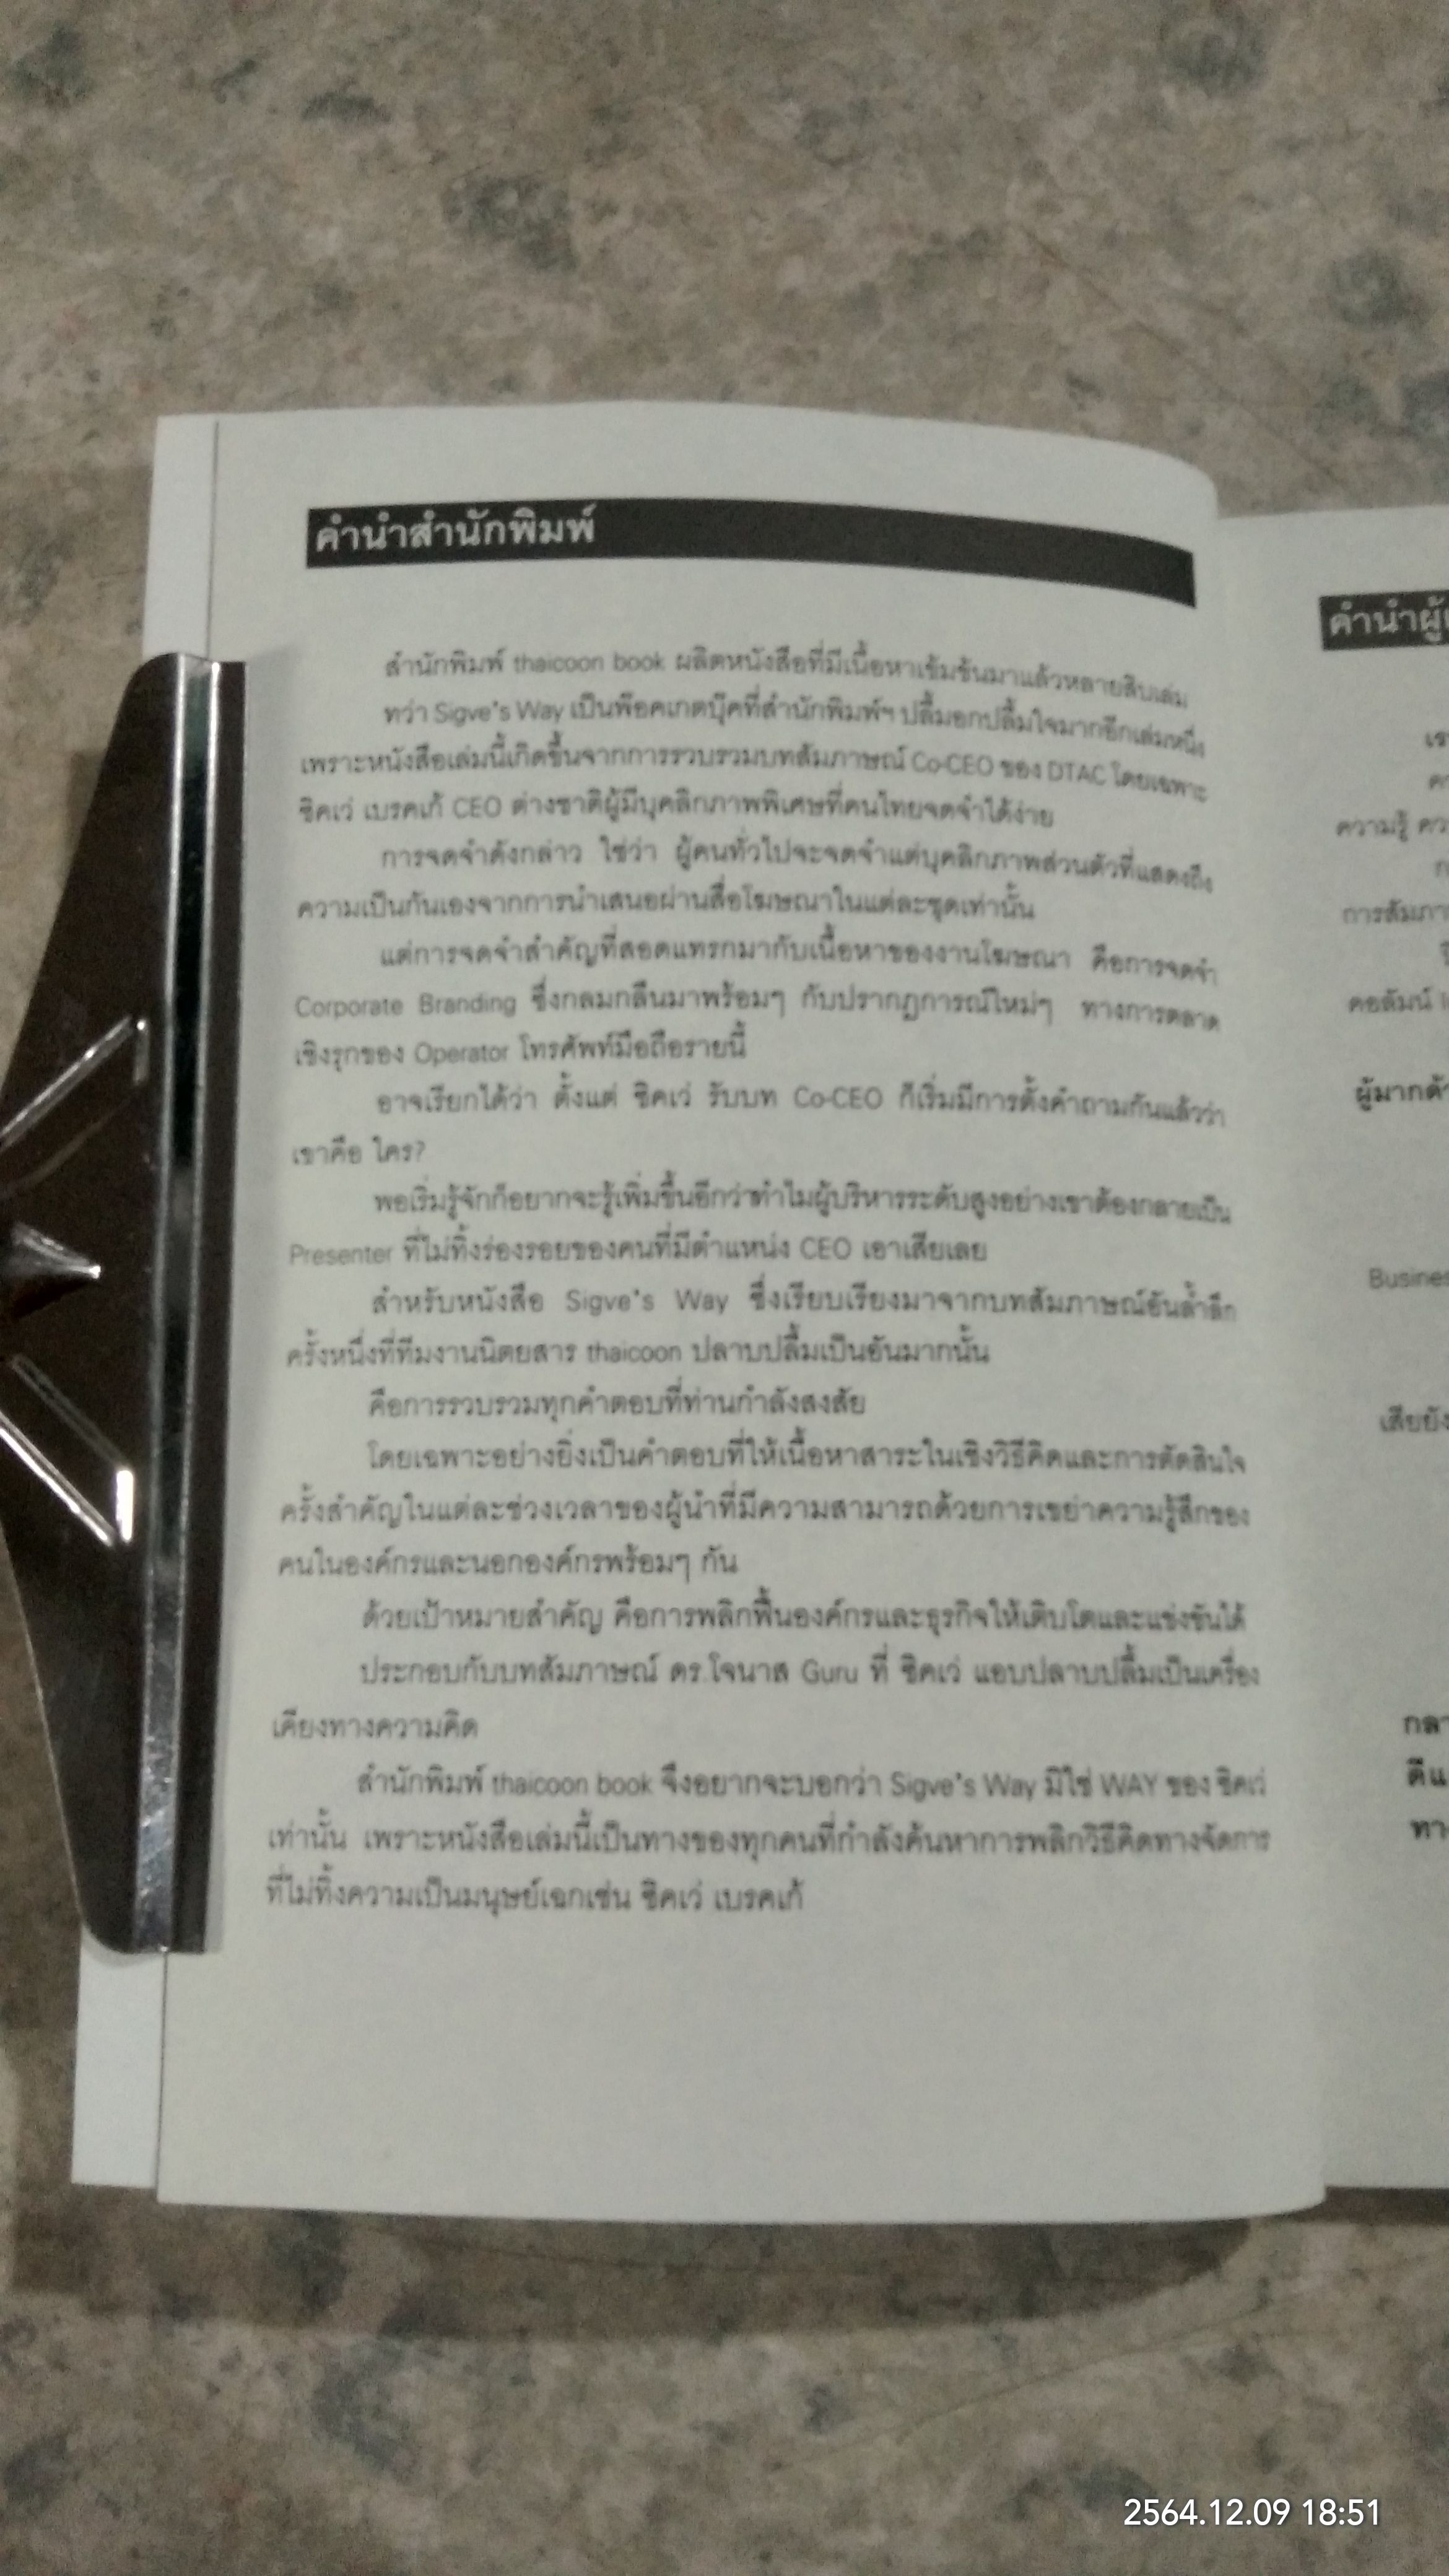 คำนำสำนักพิมพ์
สำนักพิมพ์ thaicoon book ผลิตหนังสือที่มีเนื้อหาเข้มข้นมาแล้วหลายสิบเล่ม
ทว่า Sigve's Way เป็นพ๊อคเกตบุ๊คที่สำนักพิมพ์ฯ ปลื้มอกปลื้มใจมากอีกเล่มหนึ่ง
เพราะหนังสือเล่มนี้เกิดขึ้นจากการรวบรวมบทสัมภาษณ์ Co-CEO ของ DTAC โดยเฉพาะ
ซิคเว่ เบรคเก้ CEO ต่างชาติผู้มีบุคลิกภาพพิเศษที่คนไทยจดจำได้ง่าย
การจดจำดังกล่าว ใช่ว่า ผู้คนทั่วไปจะจดจำแต่บุคลิกภาพส่วนตัวที่แสดงถึง
ความเป็นกันเองจากการนำเสนอผ่านสื่อโฆษณาในแต่ละชุดเท่านั้น
แต่การจดจำสำคัญที่สอดแทรกมากับเนื้อหาของงานโฆษณา คือการจดจำ
Corporate Branding ซึ่งกลมกลืนมาพร้อมๆ กับปรากฏการณ์ใหม่ๆ ทางการตลาด
เชิงรุกของ Operator โทรศัพท์มือถือรายนี้
อาจเรียกได้ว่า ตั้งแต่ ซิคเว่ รับบท Co-CEO ก็เริ่มมีการตั้งคำถามกันแล้วว่า
เขาคือ ใคร?
พอเริ่มรู้จักก็อยากจะรู้เพิ่มขึ้นอีกว่าทำไมผู้บริหารระดับสูงอย่างเขาต้องกลายเป็น
Presenter ที่ไม่ทิ้งร่องรอยของคนที่มีตำแหน่ง CEO เอาเสียเลย
สำหรับหนังสือ Sigve's Way ซึ่งเรียบเรียงมาจากบทสัมภาษณ์อันล้ำลึก
ครั้งหนึ่งที่ทีมงานนิตยสาร thaicoon ปลาบปลื้มเป็นอันมากนั้น
คือการรวบรวมทุกคำตอบที่ท่านกำลังสงสัย
โดยเฉพาะอย่างยิ่งเป็นคำตอบที่ให้เนื้อหาสาระในเชิงวิธีคิดและการตัดสินใจ
ครั้งสำคัญในแต่ละช่วงเวลาของผู้นำที่มีความสามารถด้วยการเขย่าความรู้สึกของ
คนในองค์กรและนอกองค์กรพร้อมๆ กัน
ด้วยเป้าหมายสำคัญ คือการพลิกฟื้นองค์กรและธุรกิจให้เติบโตและแข่งขันได้
ประกอบกับบทสัมภาษณ์ ดร.โจนาส Guru ที่ ซิคเว่ แอบปลาบปลื้มเป็นเครื่อง
เคียงทางความคิด
สำนักพิมพ์ thaicoon book จึงอยากจะบอกว่า Sigve's Way มิใช่ WAY ของ ซิคเว่
เท่านั้น เพราะหนังสือเล่มนี้เป็นทางของทุกคนที่กำลังค้นหาการพลิกวิธีคิดทางจัดการ
ที่ไม่ทิ้งความเป็นมนุษย์เฉกเช่น ซิคเว่ เบรคเก้
คำนำผู้
ความรู้
การสัมภา
คอลัมน์
ผู้มากด้
Busines
เสียยัง
กลา
ดีแ
ทา
2564.12.09 18:51